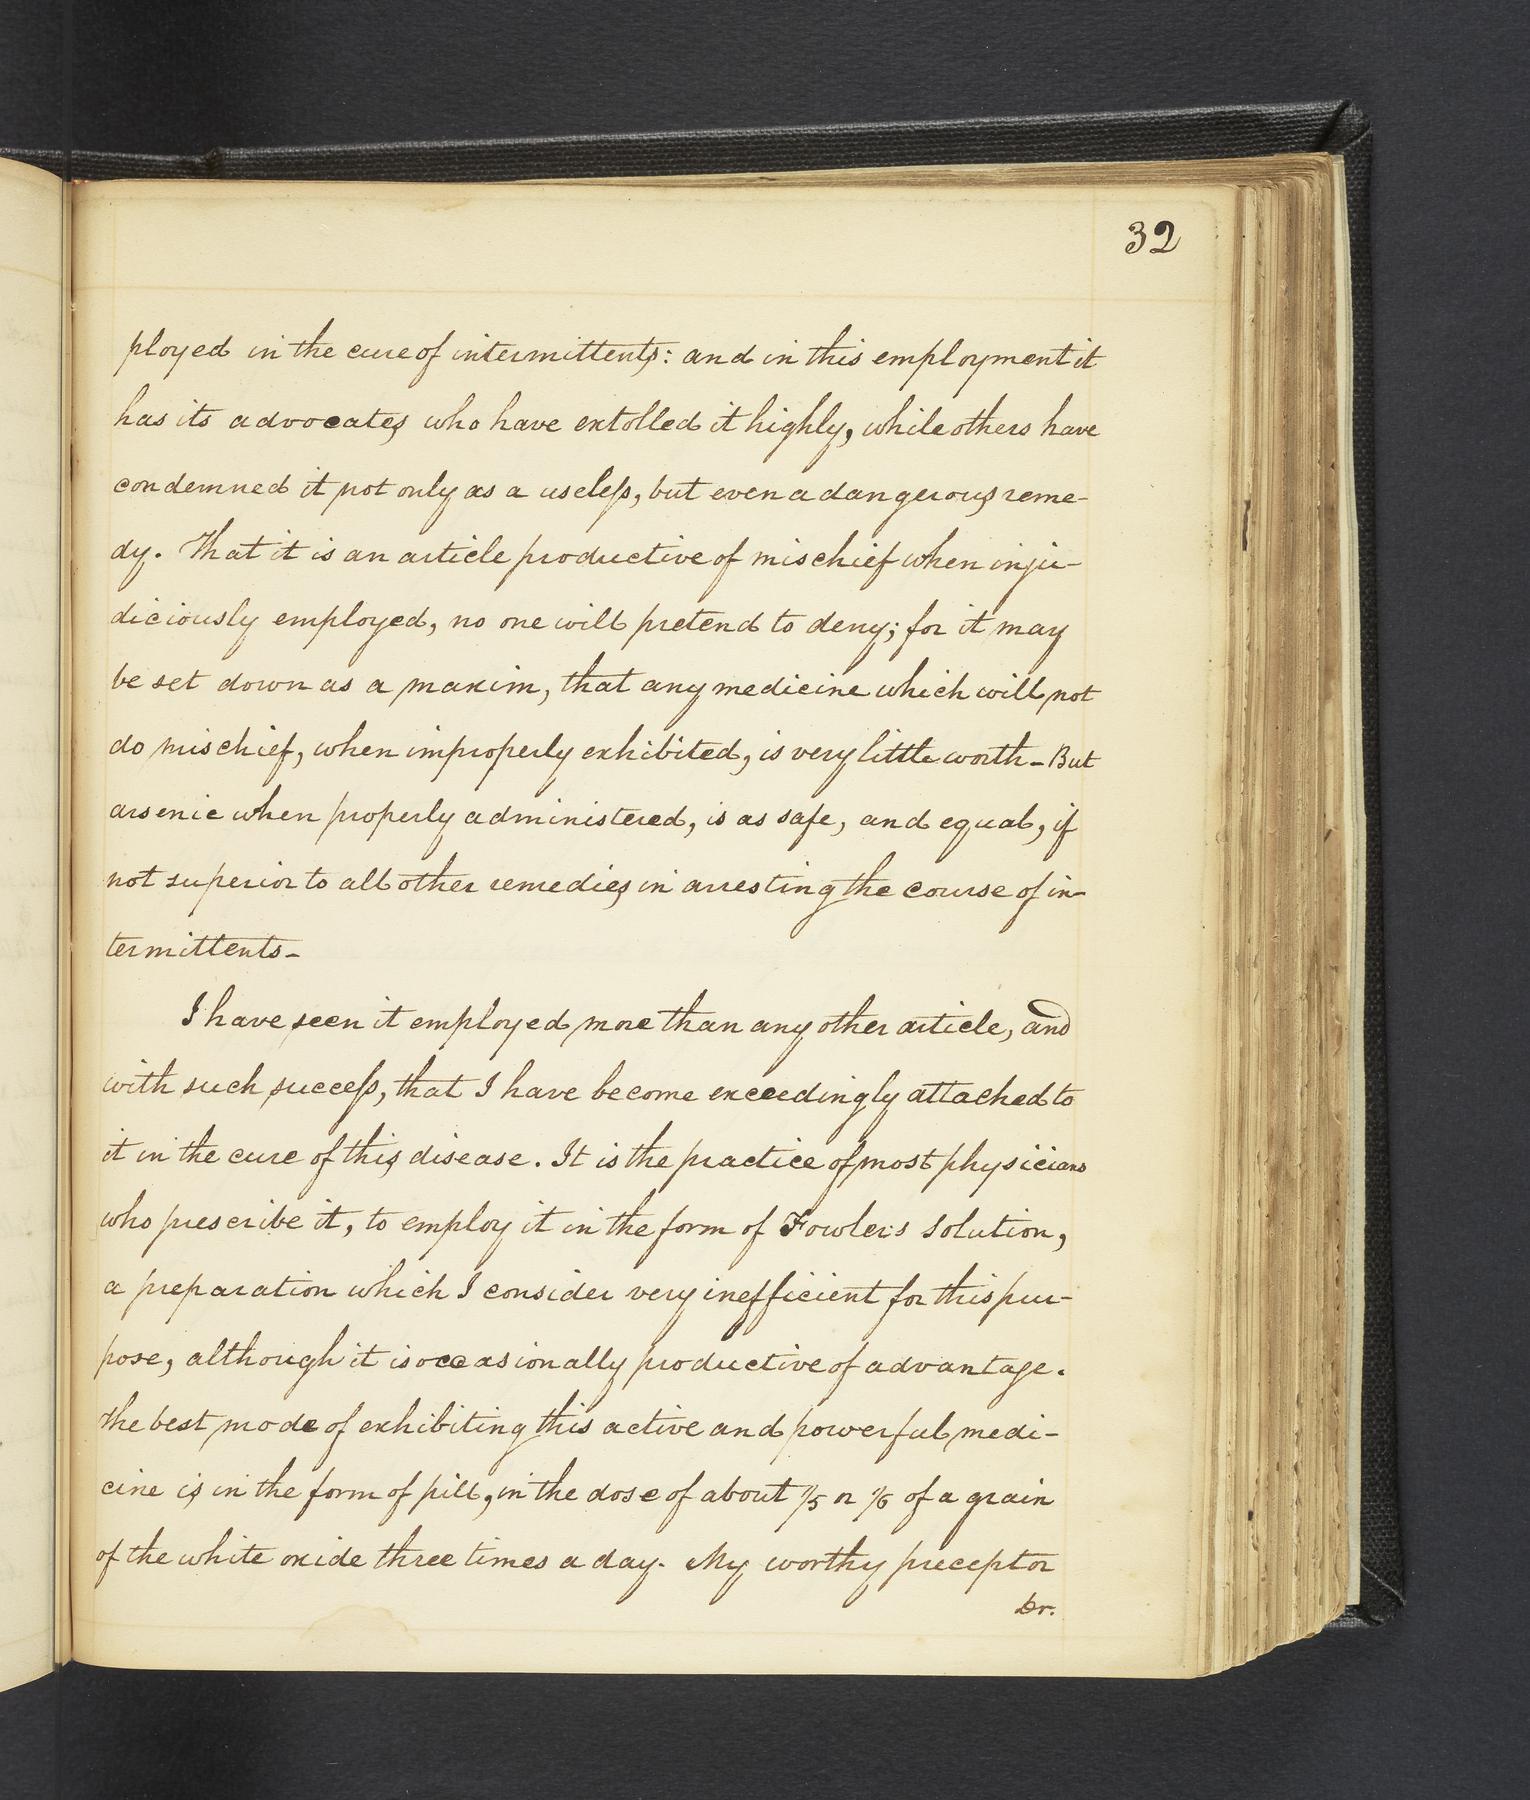 32
ployed in the cure of intermittents: and in this employment it
has its advocates who have extolled it highly, while others have
condemned it not only as a useless, but even a dangerous reme-
dy. That it is an article productive of mischief when inju-
diciously employed, no one will pretend to deny; for it may
be set down as a maxim, that any medicine which will not
do mischief, when improperly exhibited, is very little worth - But
arsenic when properly administered, is as safe, and equal, if
not superior to all other remedies in arresting the course of in-
termittents -
I have seen it employed more than any other article, and
with such success, that I have become exceedingly attached to
it in the cure of this disease. It is the practice of most physicians
who prescribe it, to employ it in the form of Fowler's solution,
a preparation which I consider very inefficient for this pur-
pose, although it is occasionally productive of advantage.
The best mode of exhibiting this active and powerful medi-
cine is in the form of pill, in the dose of about 1/5 or 1/6 of a grain
of the white oxide three times a day. My worthy preceptor
Dr.